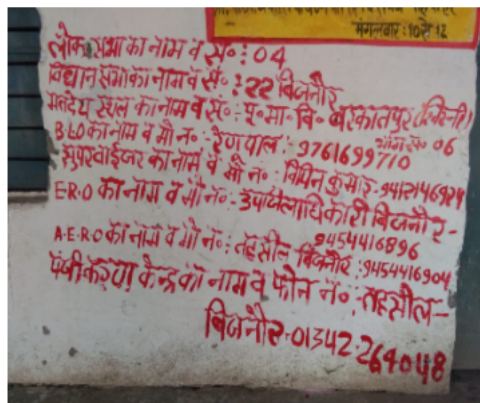 मंगलवार: 10 से 12
लोक सभा का नाम व सं॰ : 04
विधान सभा का नाम व सं॰ : 22 बिजनौर
मतदेय स्थल का नाम व सं॰ - पू॰ मा॰ वि॰ बरकातपुर
भाग सं॰ 06
B.L.O का नाम व मो न॰ : रेणपाल : 9761699710
सुपरवाईजर का नाम व मो न॰ : विपिन कुमार -
E.R.O का नाम व मो न॰ - उपजिलाधिकारी बिजनौर -
9454416896
A.E.R.O का नाम व मो न॰ : तहसील बिजनौर : 9454416904
पंजीकरण केन्द्र का नाम व फोन न॰ : तहसील -
बिजनौर - 01342-264048